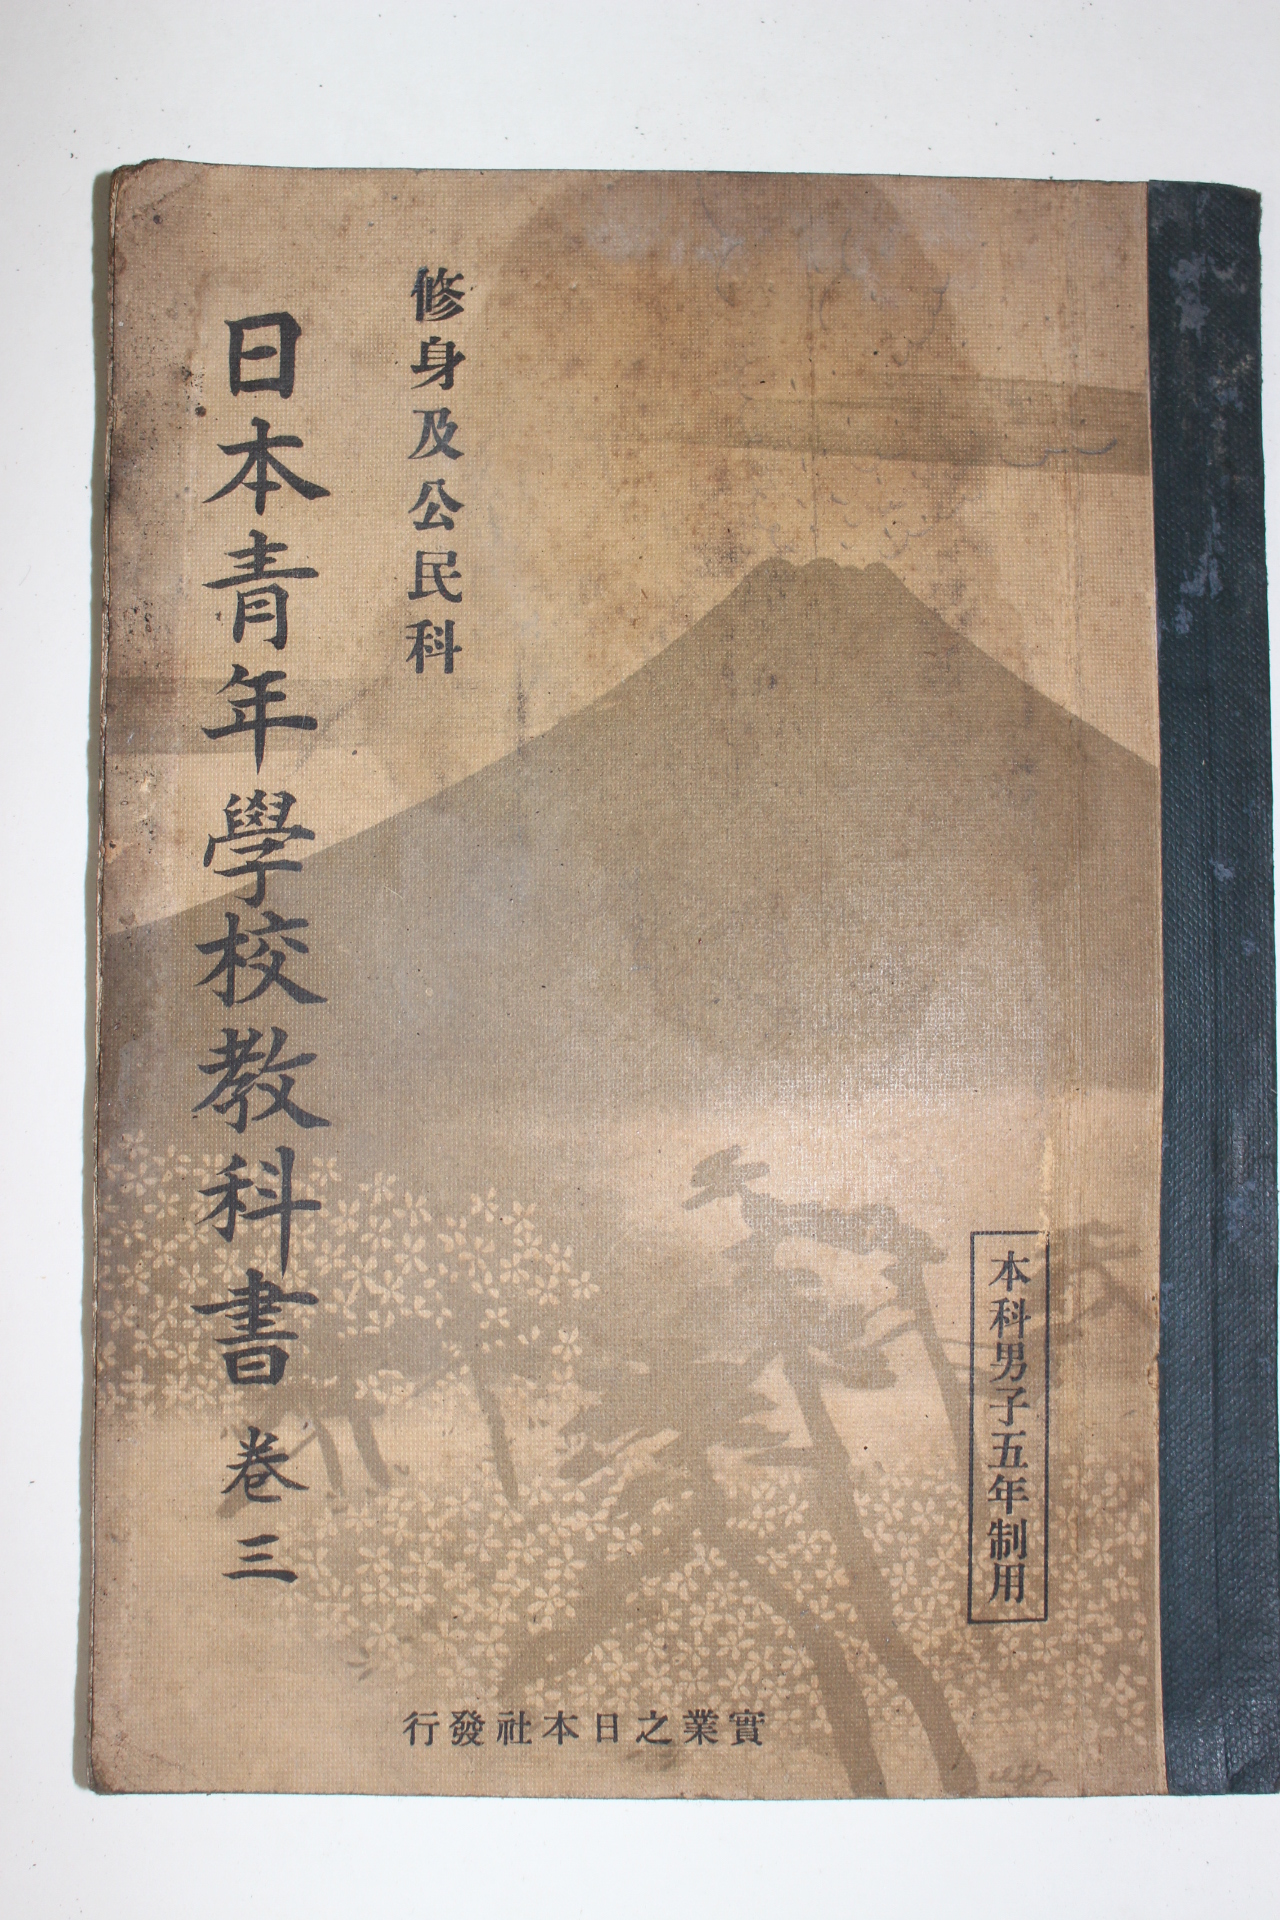 本科男子五年制用
修身及公民科
日本青年學校教科書 卷三
實業之日本社發行